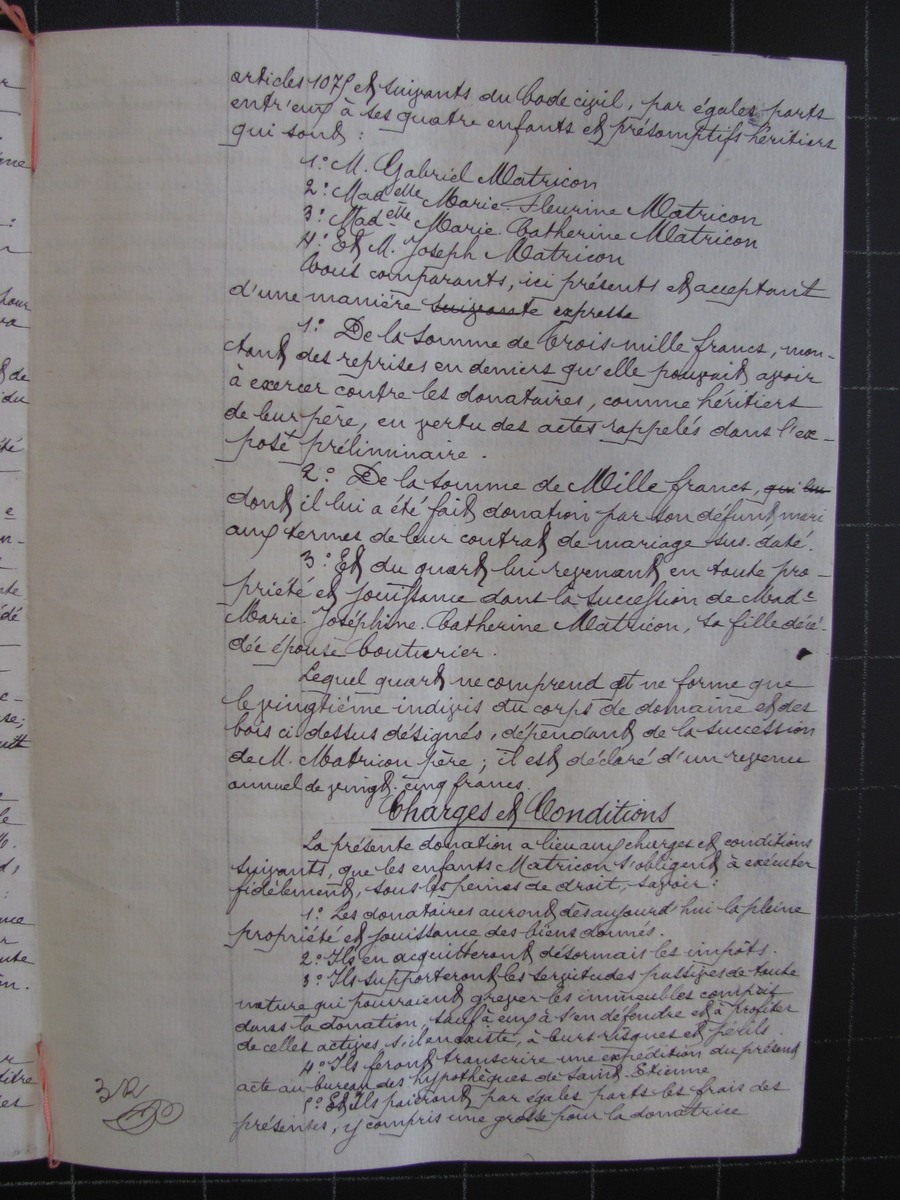 articles 1075 et suivants du Code civil, par égales parts
entr'eux à ses quatre enfants et présomptifs héritiers
qui sont :
1° M. Gabriel Matricon
2° Madelle Marie-Fleurine Matricon
3° Madelle Marie-Catherine Matricon
4° Et M. Joseph Matricon
Tous comparants, ici présents et acceptant
d'une manière suivante expresse
1° De la somme de trois mille francs, mon-
tant des reprises en deniers qu'elle pouvait avoir
à exercer contre les donataires, comme héritiers
de leur père, en vertu des actes rappelés dans l'ex-
posé préliminaire.
2° De la somme de Mille francs, qui lui
dont il lui a été fait donation par son défunt mari
aux termes de leur contrat de mariage sus-daté.
3° Et du quart lui revenant en toute pro-
priété et jouissance dans la succession de Made
Marie-Joséphine-Catherine Matricon, sa fille décé-
dée épouse Couturier.
Lequel quart ne comprend et ne forme que
le vingtième indivis du corps de domaine et des
bois ci-dessus désignés, dépendant de la succession
de M. Matricon père ; il est déclaré d'un revenu
annuel de vingt-cinq francs.
Charges et Conditions
La présente donation a lieu aux charges et conditions
suivants, que les enfants Matricon s'obligent à exécuter
fidèlement, sous les peines de droit, savoir :
1° Les donataires auront dès aujourd'hui la pleine
propriété et jouissance des biens donnés.
2° Ils en acquitteront désormais les impôts.
3° Ils supporteront les servitudes passives de toute
nature qui pourraient grever les immeubles compris
dans la donation, sauf à eux à s'en défendre et à profiter
de celles actives s'il en existe, à leurs risques et périls.
4° Ils feront transcrire une expédition du présent
acte au bureau des hypothèques de Saint-Etienne
5° Et Ils paieront par égales parts les frais des
présentes, y compris une grosse pour la donatrice
32